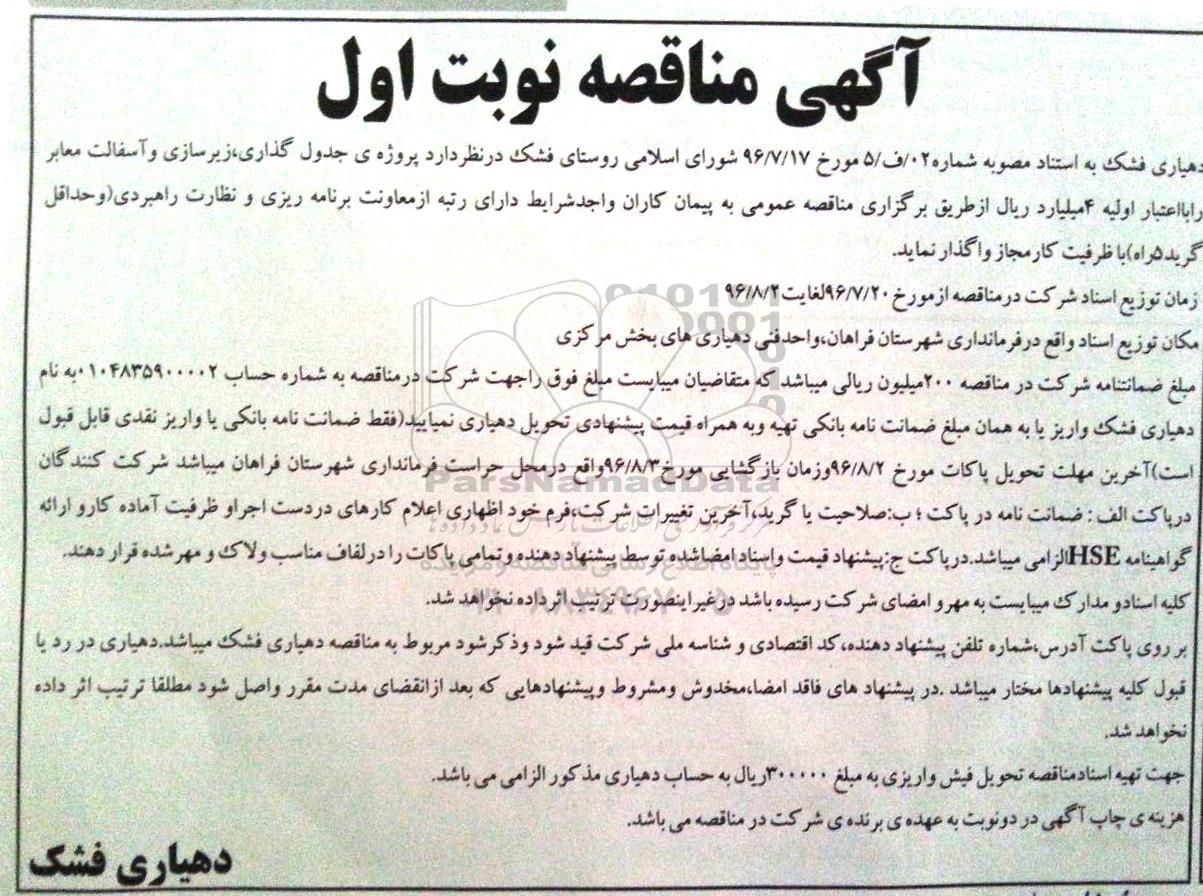 آگهی مناقصه نوبت اول
دهیاری فشک به استناد مصوبه شماره۰۲/ف/۵ مورخ ۹۶/۷/۱۷ شورای اسلامی روستای فشک درنظردارد پروژه ی جدول گذاری،زیرسازی وآسفالت معابر
رابااعتبار اولیه ۴میلیارد ریال ازطریق برگزاری مناقصه عمومی به پیمان کاران واجدشرایط دارای رتبه ازمعاونت برنامه ریزی و نظارت راهبردی(وحداقل
گرید۵راه)با ظرفیت کارمجاز واگذار نماید.
زمان توزیع اسناد شرکت درمناقصه ازمورخ ۹۶/۷/۲۰لغایت۹۶/۸/۲
مکان توزیع اسناد واقع درفرمانداری شهرستان فراهان،واحدفنی دهیاری های بخش مرکزی
مبلغ ضمانتنامه شرکت در مناقصه ۲۰۰میلیون ریالی میباشد که متقاضیان میبایست مبلغ فوق راجهت شرکت درمناقصه به شماره حساب ۰۱۰۴۸۳۵۹۰۰۰۰۲به نام
دهیاری فشک واریز یا به همان مبلغ ضمانت نامه بانکی تهیه وبه همراه قیمت پیشنهادی تحویل دهیاری نمیایید(فقط ضمانت نامه بانکی یا واریز نقدی قابل قبول
است)آخرین مهلت تحویل پاکات مورخ ۹۶/۸/۲وزمان بازگشایی مورخ۹۶/۸/۳واقع درمحل حراست فرمانداری شهرستان فراهان میباشد شرکت کنندگان
ParsNamadData
درپاکت الف : ضمانت نامه در پاکت ؛ ب:صلاحیت یا گرید،آخرین تغییرات شرکت،فرم خود اظهاری اعلام کارهای دردست اجراو ظرفیت آماده کارو ارائه
گواهینامه HSEالزامی میباشد.درپاکت ج:پیشنهاد قیمت واسناد امضاشده توسط پیشنهاد دهنده وتمامی پاکات را درلفاف مناسب ولاک و مهرشده قرار دهند.
پایگاه اطلاع رسانی مناقصه و مزایده
کلیه اسنادو مدارک میبایست به مهرو امضای شرکت رسیده باشد درغیر اینصورت ترتیب اثر داده نخواهد شد.
بر روی پاکت آدرس،شماره تلفن پیشنهاد دهنده،کد اقتصادی و شناسه ملی شرکت قید شود وذکرشود مربوط به مناقصه دهیاری فشک میباشد.دهیاری در رد یا
قبول کلیه پیشنهادها مختار میباشد .در پیشنهاد های فاقد امضا،مخدوش ومشروط وپیشنهادهایی که بعد ازانقضای مدت مقرر واصل شود مطلقا ترتیب اثر داده
نخواهد شد.
جهت تهیه اسنادمناقصه تحویل فیش واریزی به مبلغ ۳۰۰۰۰۰ریال به حساب دهیاری مذکور الزامی می باشد.
هزینه ی چاپ آگهی در دونوبت به عهده ی برنده ی شرکت در مناقصه می باشد.
دهیاری فشک